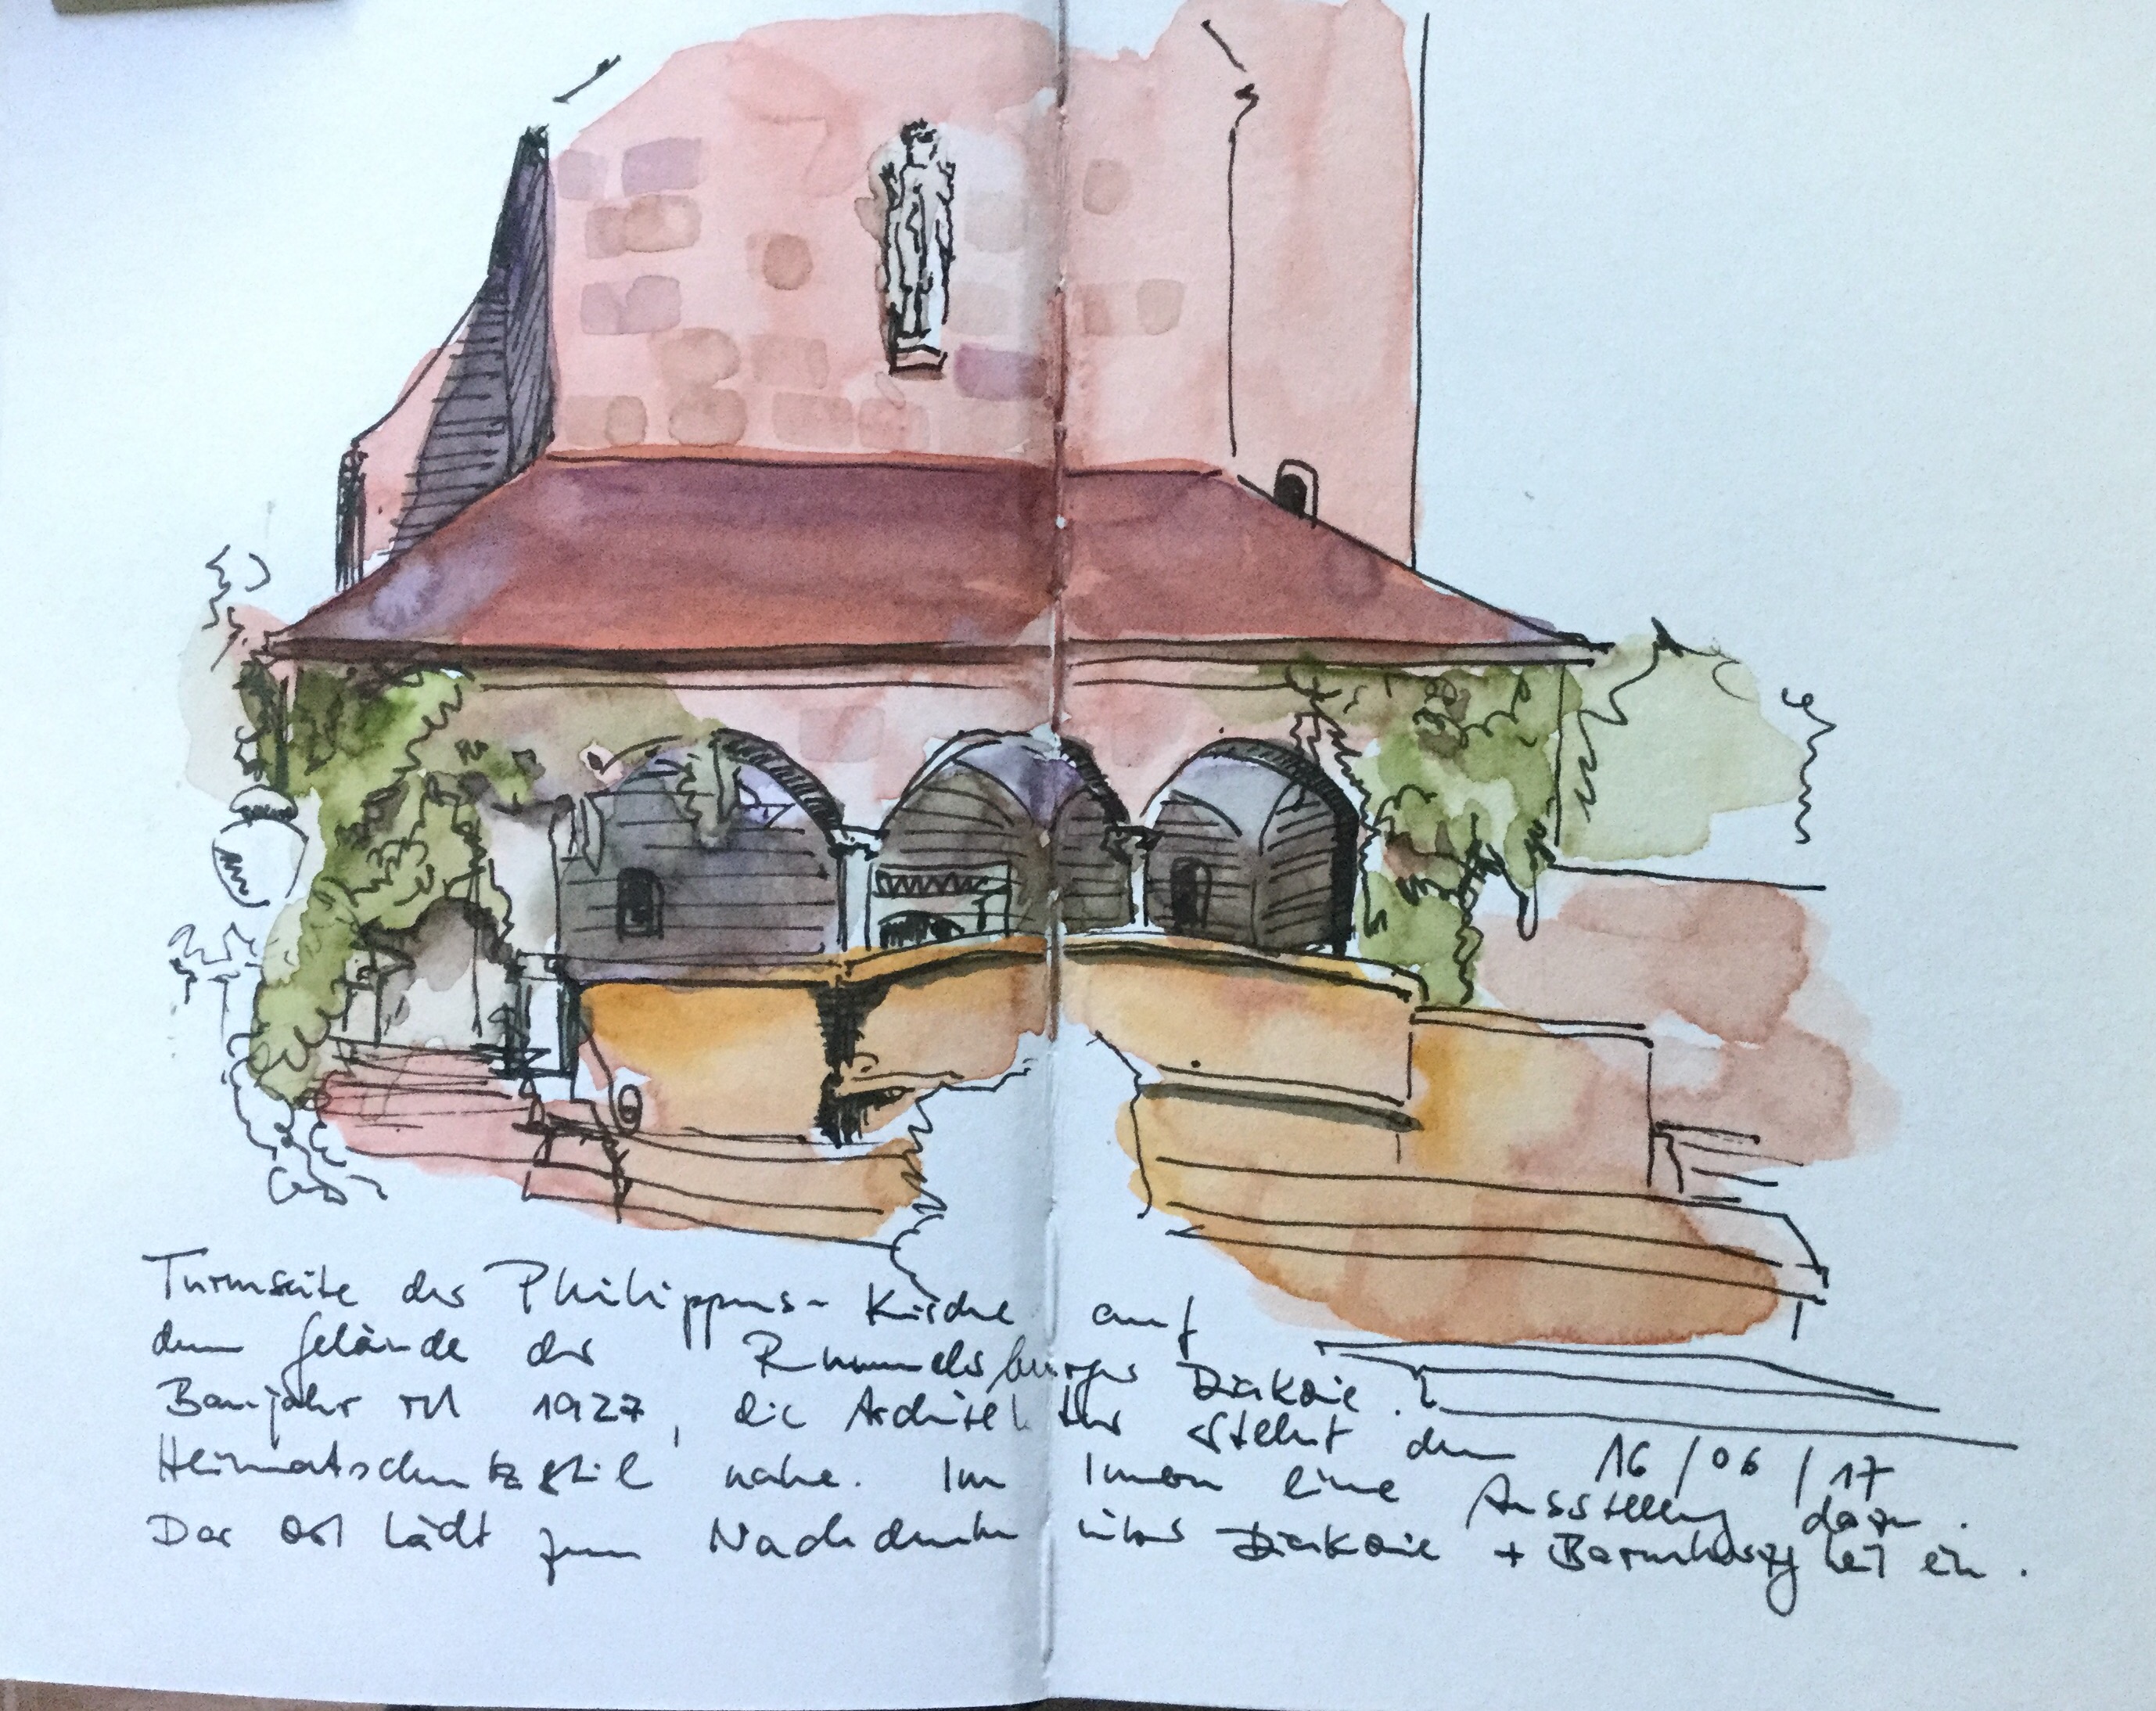 Turmseite der Philippus-Kirche auf
dem Gelände der Rummelsburger Diakonie.
Baujahr ist 1927, die Architektur steht dem
Heimatschutzstil nahe. Im Innern eine Ausstellung dazu.
Der Ort lädt zum Nachdenken über Diakonie + Barmherzigkeit ein.
16/06/17